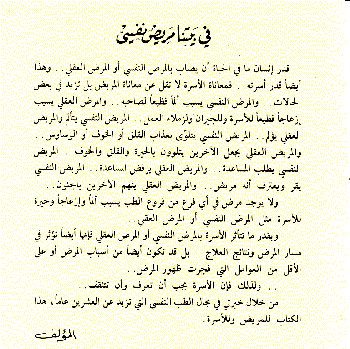 في بيتنا مريض نفسي
قدر إنسان ما في الحياة أن يصاب بالمرض النفسي أو المرض العقلي .. وهذا
أيضاً قدر أسرته .. فمعاناة الأسرة لا تقل عن معاناة المريض بل تزيد في بعض
الحالات .. والمرض النفسي يسبب ألماً فظيعاً لصاحبه .. والمرض العقلي يسبب
إزعاجاً فظيعاً للأسرة وللجيران ولزملاء العمل .. المريض النفسي يتألم والمريض
العقلي يؤلم .. المريض النفسي يتلوى بعذاب القلق أو الخوف أو الوساوس ..
والمريض العقلي يجعل الآخرين يتلوون بالحيرة والقلق والخوف .. المريض
النفسي يطلب المساعدة .. والمريض العقلي يرفض المساعدة .. المريض النفسي
يقر ويعترف أنه مريض .. والمريض العقلي يتهم الآخرين بالجنون ..
ولا يوجد مرض في أي فرع من فروع الطب يسبب ألماً وإزعاجاً وحيرة
للأسرة مثل المرض النفسي أو المرض العقلي ..
وبقدر ما تتأثر الأسرة بالمرض النفسي أو المرض العقلي فإنها أيضاً تؤثر في
مسار المرض ونتائج العلاج .. بل قد تكون أيضاً من أسباب المرض أو على
الأقل من العوامل التي فجرت ظهور المرض ..
.. ولذلك فإن الأسرة يجب أن تعرف وأن تتثقف ..
من خلال خبرتي في مجال الطب النفسي التي تزيد عن العشرين عاماً، هذا
الكتاب للمريض وللأسرة .
المؤلف